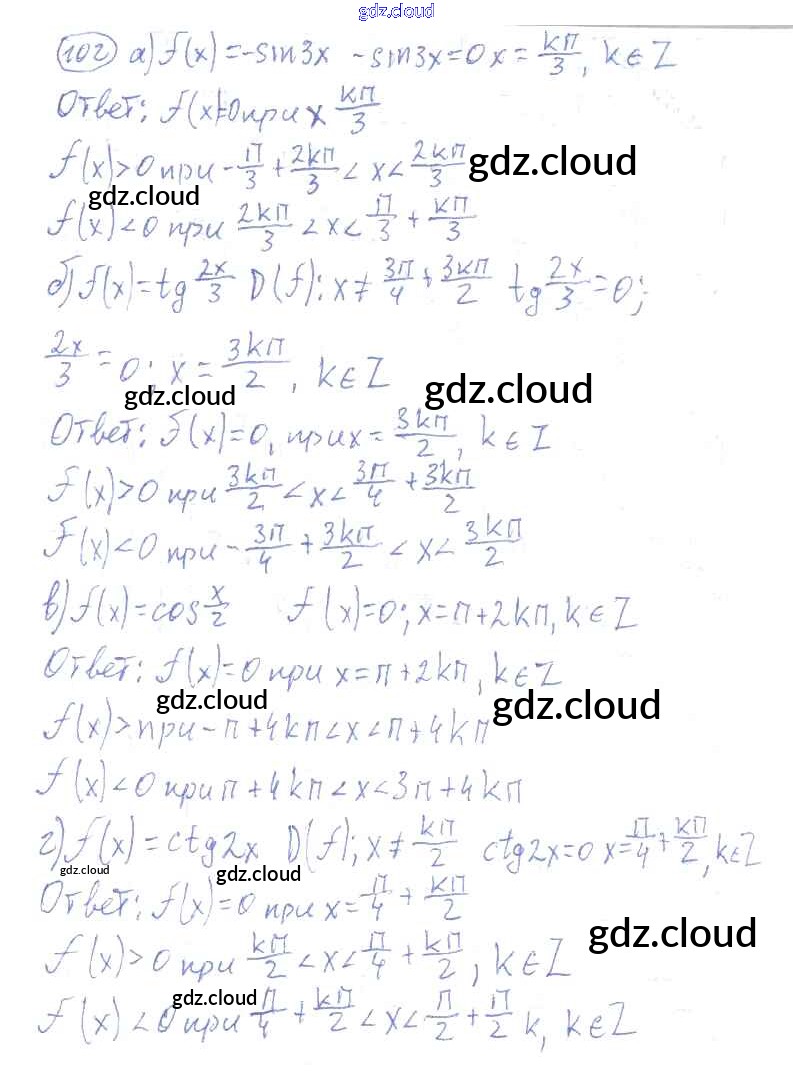 gdz.cloud
102) а) f(x)=-sin3x -sin3x=0 x=kπ/3, k∈Z
Ответ: f(x)=0 при x kπ/3
f(x)>0 при -π/3+2kπ/3<x<2kπ/3 gdz.cloud
gdz.cloud
f(x)<0 при 2kπ/3<x<π/3+kπ/3
б) f(x)=tg 2x/3 D(f): x≠3π/4+3kπ/2 tg 2x/3=0;
2x/3=0; x=3kπ/2, k∈Z
gdz.cloud gdz.cloud
Ответ: f(x)=0, при x=3kπ/2, k∈Z
f(x)>0 при 3kπ/2<x<3π/4+3kπ/2
f(x)<0 при -3π/4+3kπ/2<x<3kπ/2
в) f(x)=cos x/2 f(x)=0; x=π+2kπ, k∈Z
Ответ: f(x)=0 при x=π+2kπ, k∈Z
gdz.cloud gdz.cloud
f(x)>при -π+4kπ<x<π+4kπ
f(x)<0 при π+4kπ<x<3π+4kπ
г) f(x)=ctg2x D(f); x≠kπ/2 ctg2x=0 x=π/4+kπ/2, k∈Z
gdz.cloud gdz.cloud
Ответ: f(x)=0 при x=π/4+kπ/2
gdz.cloud
f(x)>0 при kπ/2<x<π/4+kπ/2, k∈Z
gdz.cloud
f(x)<0 при π/4+kπ/2<x<π/2+π/2 k, k∈Z